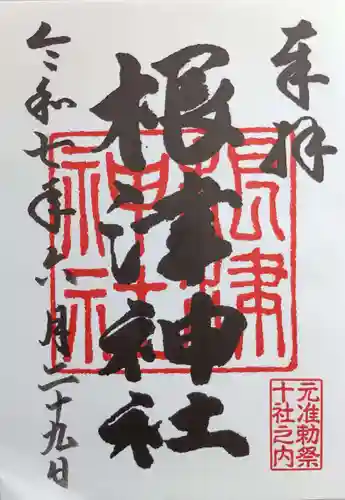 奉拝
根津神社
令和七年六月二十九日
根津
神社
元准勅祭
十社之内